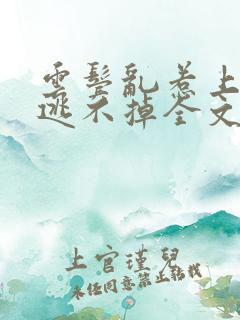 云鬓乱惹上
逃不掉全文
上官瑾兒
未经同意禁止转载